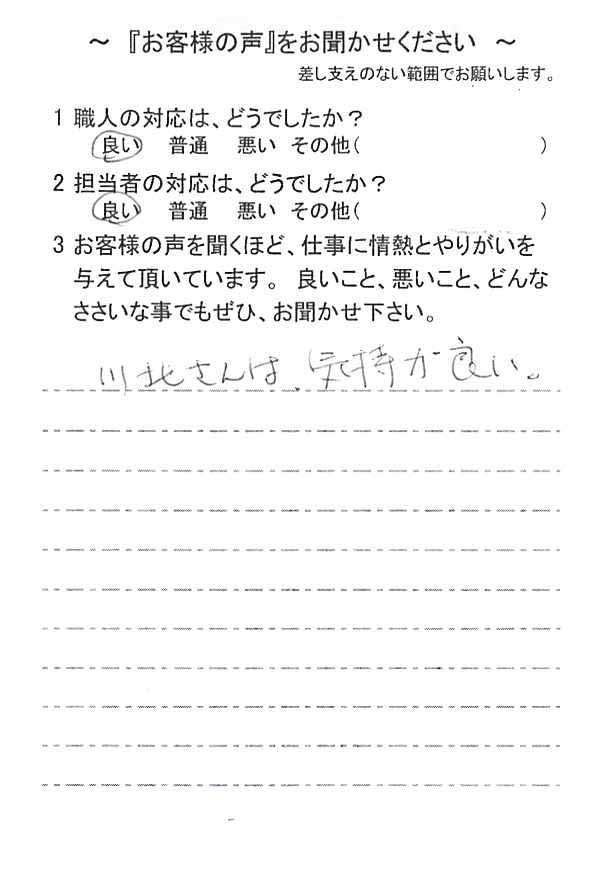 ～ 『お客様の声』をお聞かせください ～
差し支えのない範囲でお願いします。
1 職人の対応は、どうでしたか？
良い 普通 悪い その他( )
2 担当者の対応は、どうでしたか？
良い 普通 悪い その他( )
3 お客様の声を聞くほど、仕事に情熱とやりがいを
与えて頂いています。 良いこと、悪いこと、どんな
ささいな事でもぜひ、お聞かせ下さい。
川北さんは、気持が良い。